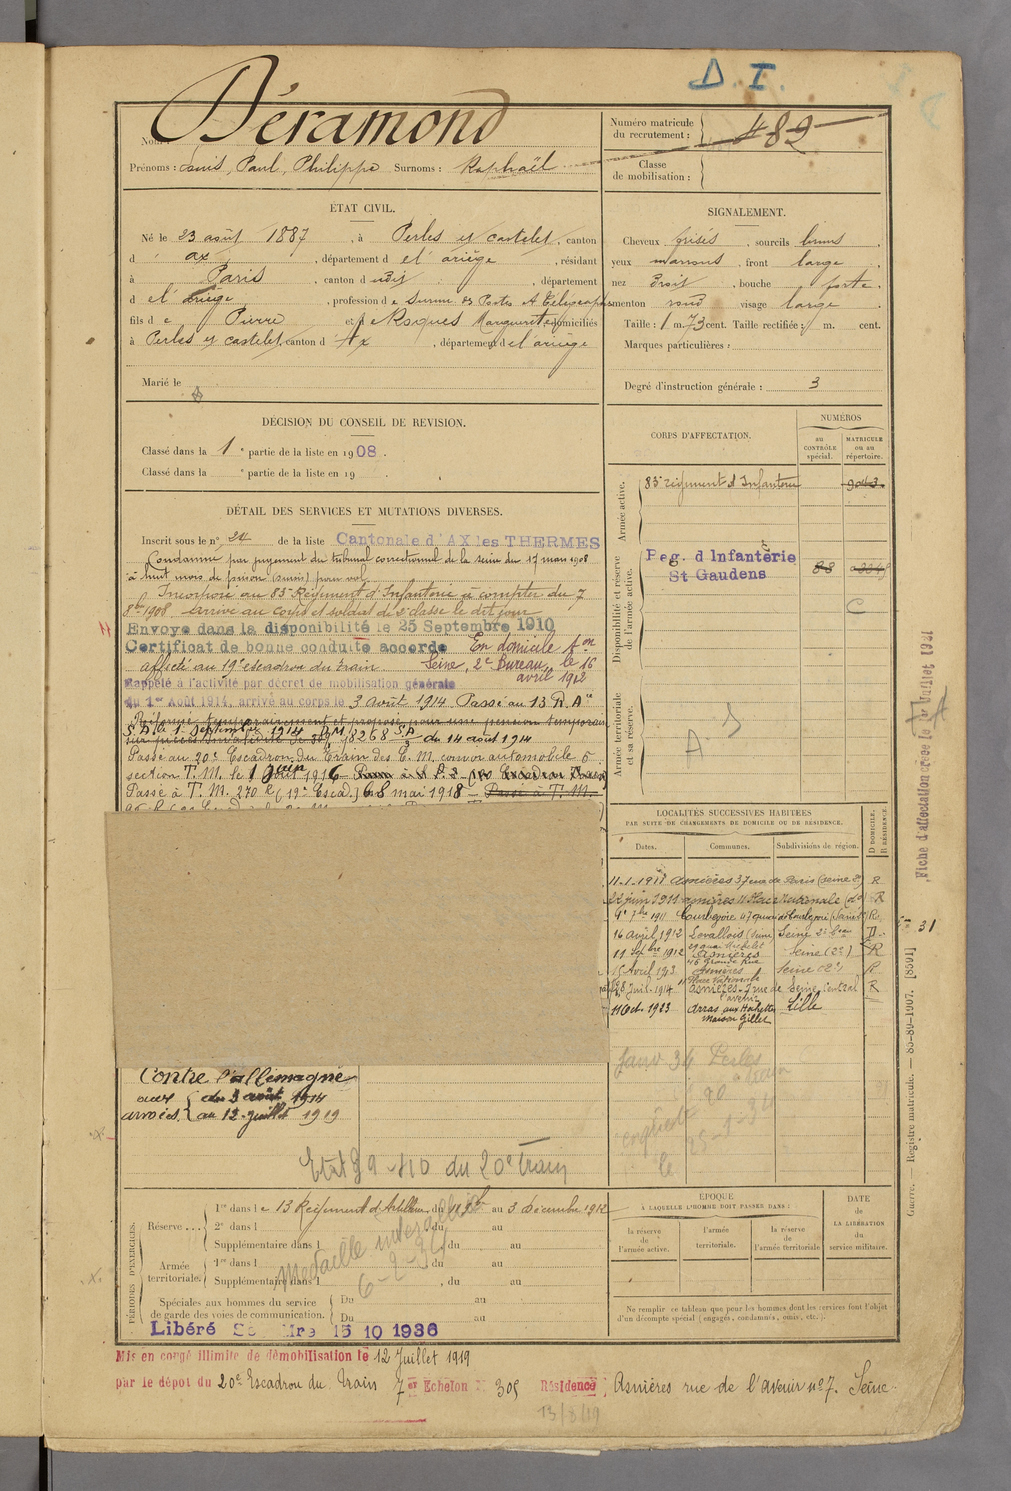 D. I.
Déramond
Nom :
Prénoms : Louis, Paul, Philippe Surnoms : Raphaël
Numéro matricule du recrutement : 482
Classe de mobilisation :
ÉTAT CIVIL.
Né le 23 août 1887, à Perles et Castelet, canton
d' ax, département d e l'ariège, résidant
à Paris, canton d udit, département
d e l'ariège, profession d e Surnum. des Postes et Télégraphes
fils d e Pierre et d e Roques Marguerite, domiciliés
à Perles et Castelet, canton d' Ax, département d e l'ariège
Marié le
SIGNALEMENT.
Cheveux frisés, sourcils bruns,
yeux marrons, front large,
nez Droit, bouche forte,
menton rond visage large
Taille : 1 m. 73 cent. Taille rectifiée : m. cent.
Marques particulières :
Degré d'instruction générale : 3
DÉCISION DU CONSEIL DE REVISION.
Classé dans la 1e partie de la liste en 1908.
Classé dans la e partie de la liste en 19
CORPS D'AFFECTATION.
NUMÉROS
au CONTRÔLE spécial.
MATRICULE ou au répertoire.
Armée active.
83e régiment d'Infanterie
Disponibilité et réserve de l'armée active.
Reg. d'Infanterie
St Gaudens
88
Armée territoriale et sa réserve.
DÉTAIL DES SERVICES ET MUTATIONS DIVERSES.
Inscrit sous le n° 24 de la liste Cantonale d'AX les THERMES
Condamné par jugement du tribunal correctionnel de la Seine du 17 mars 1908
à huit mois de prison (sursis) pour vol.
Incorporé au 83e Régiment d'Infanterie à compter du 7
8bre 1908 arrivé au corps et soldat de 2e classe le dit jour
Envoyé dans la disponibilité le 25 Septembre 1910
Certificat de bonne conduite accordé En domicile
affecté au 19e escadron du train Seine, 2e Bureau, le 16 avril 1912
Rappelé à l'activité par décret de mobilisation générale
du 1er Août 1914, arrivé au corps le 3 août 1914 Passé au 13 R. A.
Réformé temporairement et proposé pour une pension temporaire
18268 du 14 août 1914
Passé au 20e Escadron du Train des E. M. convoi automobile
section T. M. le 1 Juin 1916
Passé à T. M. 270 (19e Escad.) le 8 mai 1918 Passé à T. M.
LOCALITÉS SUCCESSIVES HABITÉES
PAR SUITE DE CHANGEMENTS DE DOMICILE OU DE RÉSIDENCE.
Dates. Communes. Subdivisions de région. D DOMICILE. R RÉSIDENCE.
11-1-1911 Asnières 37 rue de Paris (Seine 2e) R
22 juin 1911 asnières 11 Place Nationale R
1911 Courbevoie 47 quai de Courbevoie R
16 avril 1912 Levallois (Seine) Seine 2e Beau D.
11 7bre 1912 Asnières Seine (2e) R
15 Avril 1913 46 Grande Rue Asnières Seine (2e) R
28 Juil. 1914 Asnières 7 rue de l'avenir Seine Central R
11 Oct. 1923 Arras aux Hochettes Maison Gillet Lille
Janv 34 Perles
enquête
le 25-1-34
Contre l'allemagne
aux armées { du 3 août 1914
au 12 juillet 1919
Etat 39-410 du 20e Train
PÉRIODES D'EXERCICES.
Réserve
1re dans l e 13 Régiment d'Artillerie du au 3 décembre 1912
2e dans l du au
Supplémentaire dans l du au
Armée territoriale.
1re dans l du au
Supplémentaire dans l, du au
Spéciales aux hommes du service de garde des voies de communication.
Du au
Du au
Medaille interalliée
6-2-34
ÉPOQUE
À LAQUELLE L'HOMME DOIT PASSER DANS :
la réserve de l'armée active.
l'armée territoriale.
la réserve de l'armée territoriale
DATE DE LA LIBÉRATION du service militaire.
Ne remplir ce tableau que pour les hommes dont les services font l'objet d'un décompte spécial (engagés, condamnés, omis, etc.).
Libéré Sce Mre 15 10 1936
Mis en congé illimité de démobilisation le 12 Juillet 1919
par le dépot du 20e Escadron du Train 7e Echelon N° 305 Résidence Asnières rue de l'avenir n° 7. Seine
13/8/19
Fiche d'affectation créée le 1er Juillet 1931
31
Guerre. — Registre matricule. — 85-89-1907. [8501]